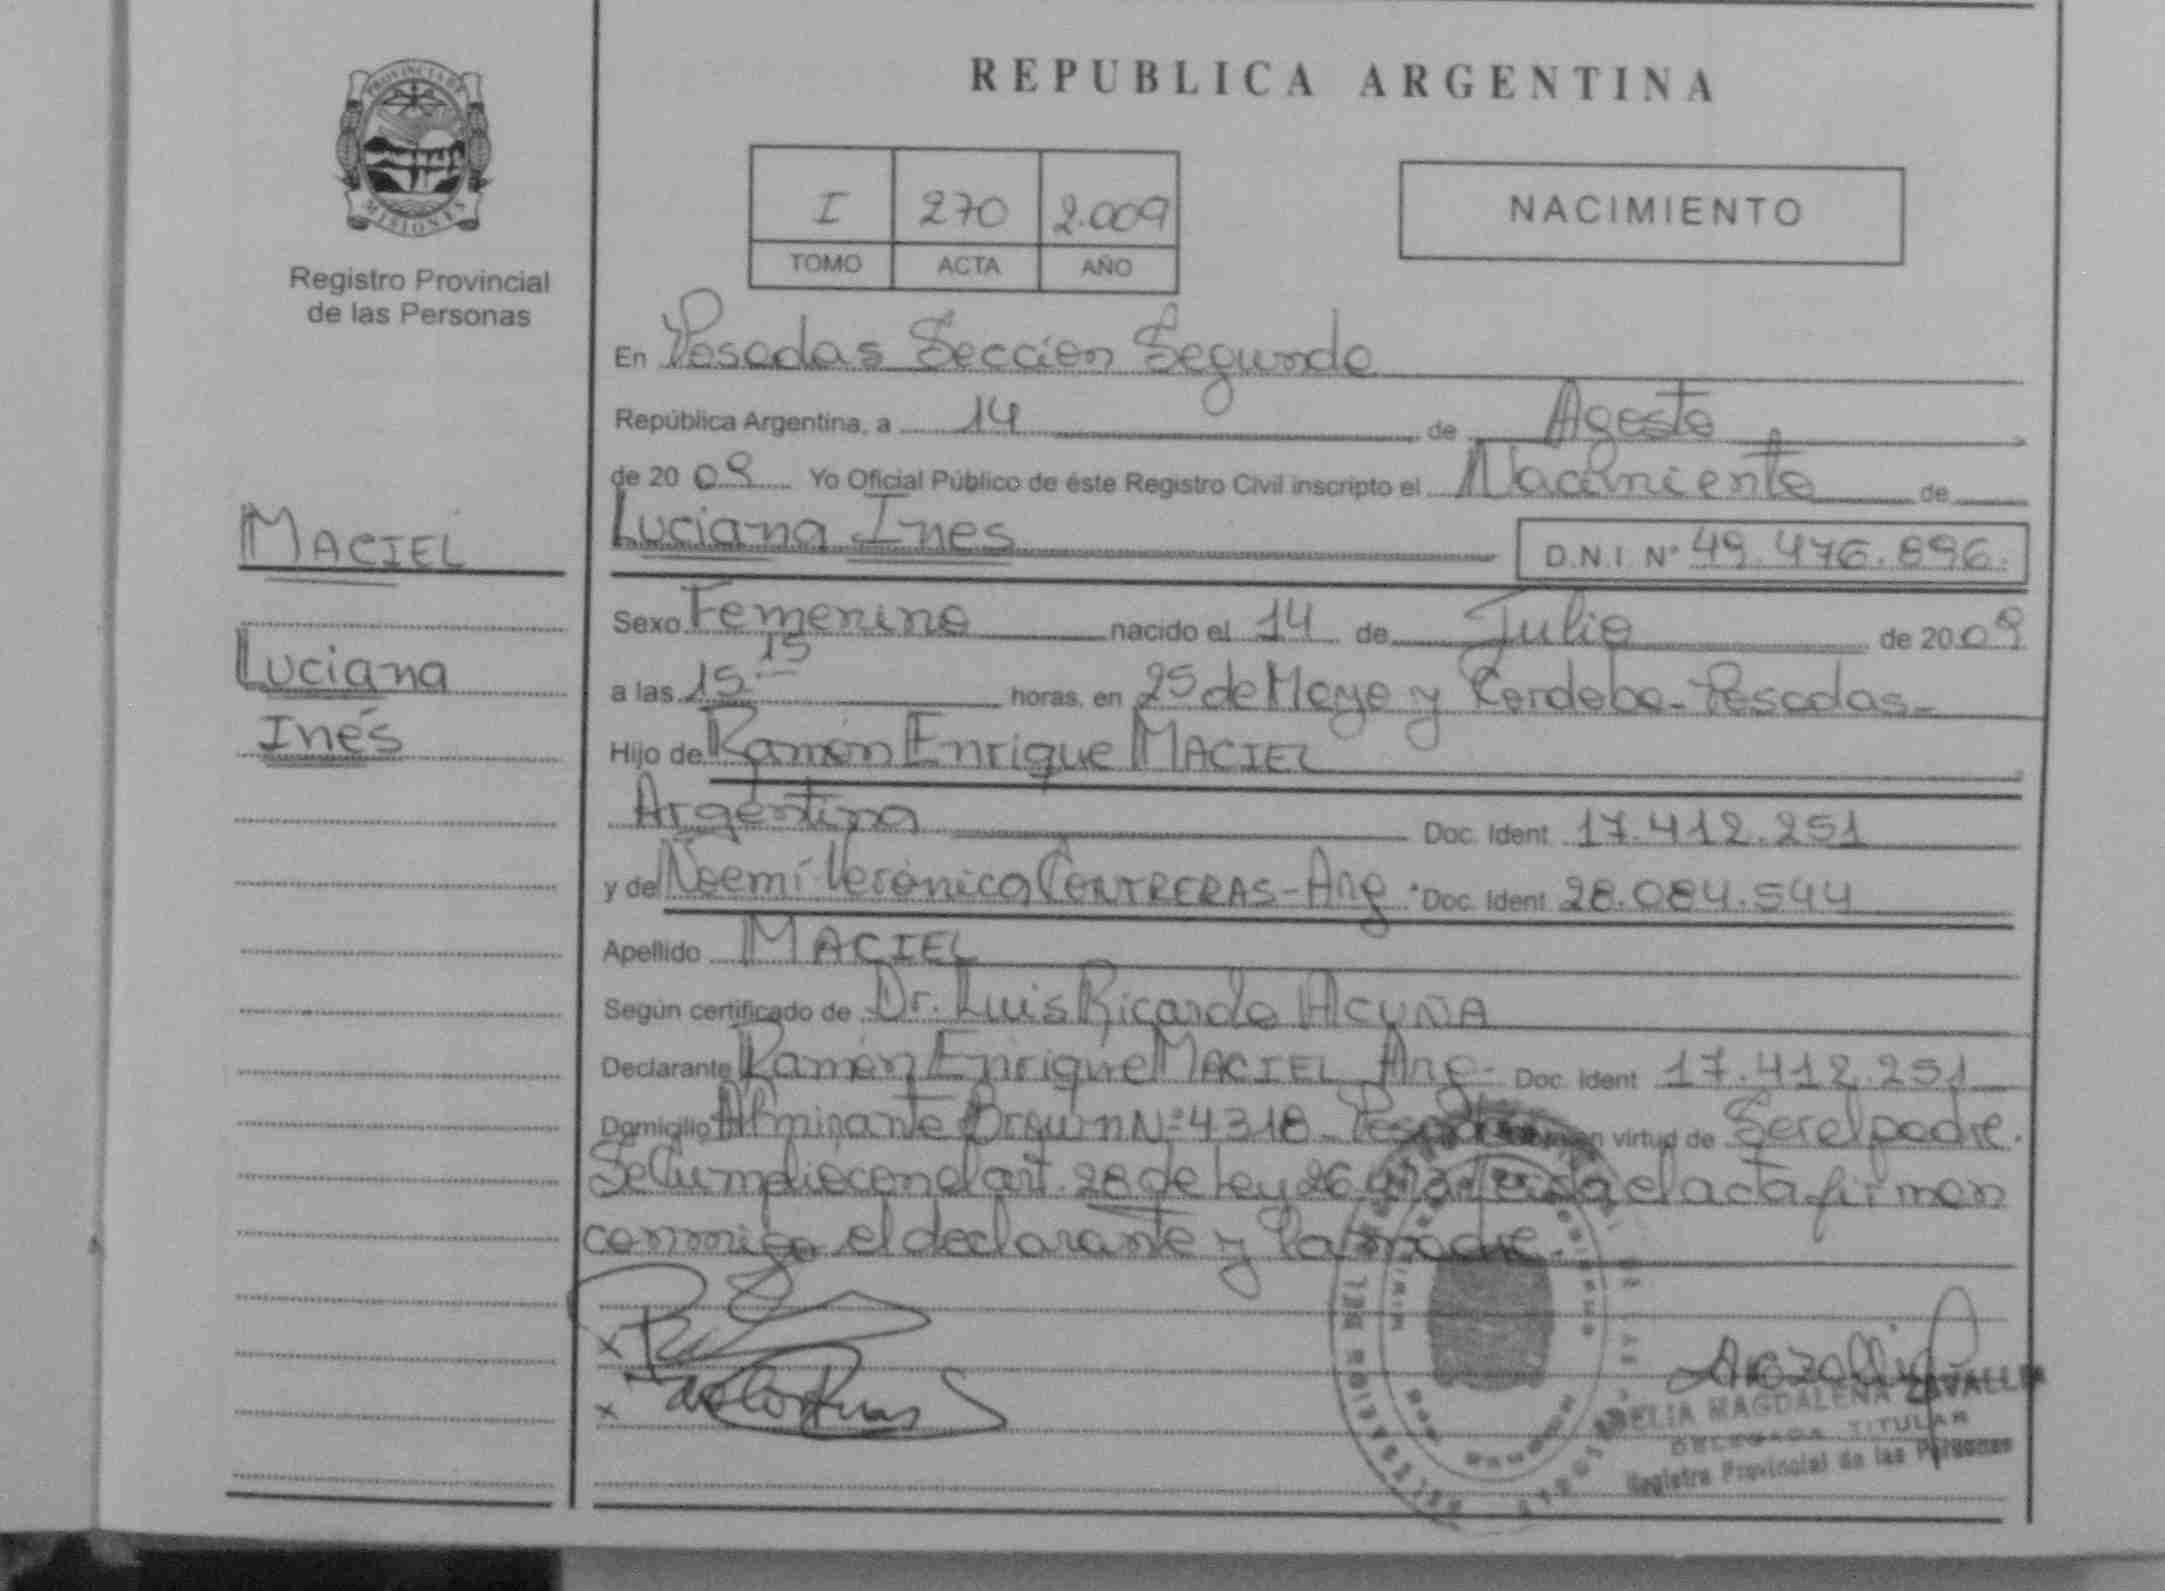 REPUBLICA ARGENTINA
PROVINCIA DE
MISIONES
Registro Provincial
de las Personas
I 270 2.009
TOMO ACTA AÑO
NACIMIENTO
MACIEL
Luciana
Inés
En Posadas Sección Segunda
República Argentina, a 14 de Agosto
de 20 09 Yo Oficial Público de éste Registro Civil inscripto el Nacimiento de
Luciana Ines D.N.I. Nº 49.476.896.
Sexo Femenino nacido el 14 de Julio de 20 09
a las 15 15 horas, en 25 de Mayo y Cordoba - Posadas -
Hijo de Ramón Enrique MACIEL
Argentina Doc. Ident 17.412.251
y de Noemí Verónica CONTRERAS - Arg. Doc. Ident 28.084.544
Apellido MACIEL
Según certificado de Dr. Luis Ricardo ACUÑA
Declarante Ramón Enrique MACIEL Arg - Doc. Ident 17.412.251
Domicilio Almirante Brown Nº 4318 - Posadas en virtud de Ser el padre.
Se Cumplió con el art. 28 de Ley 26.413 el acta firman
conmigo el declarante y la madre.
DELIA MAGDALENA ZAVALLIA
DELEGADA TITULAR
Registro Provincial de las Personas